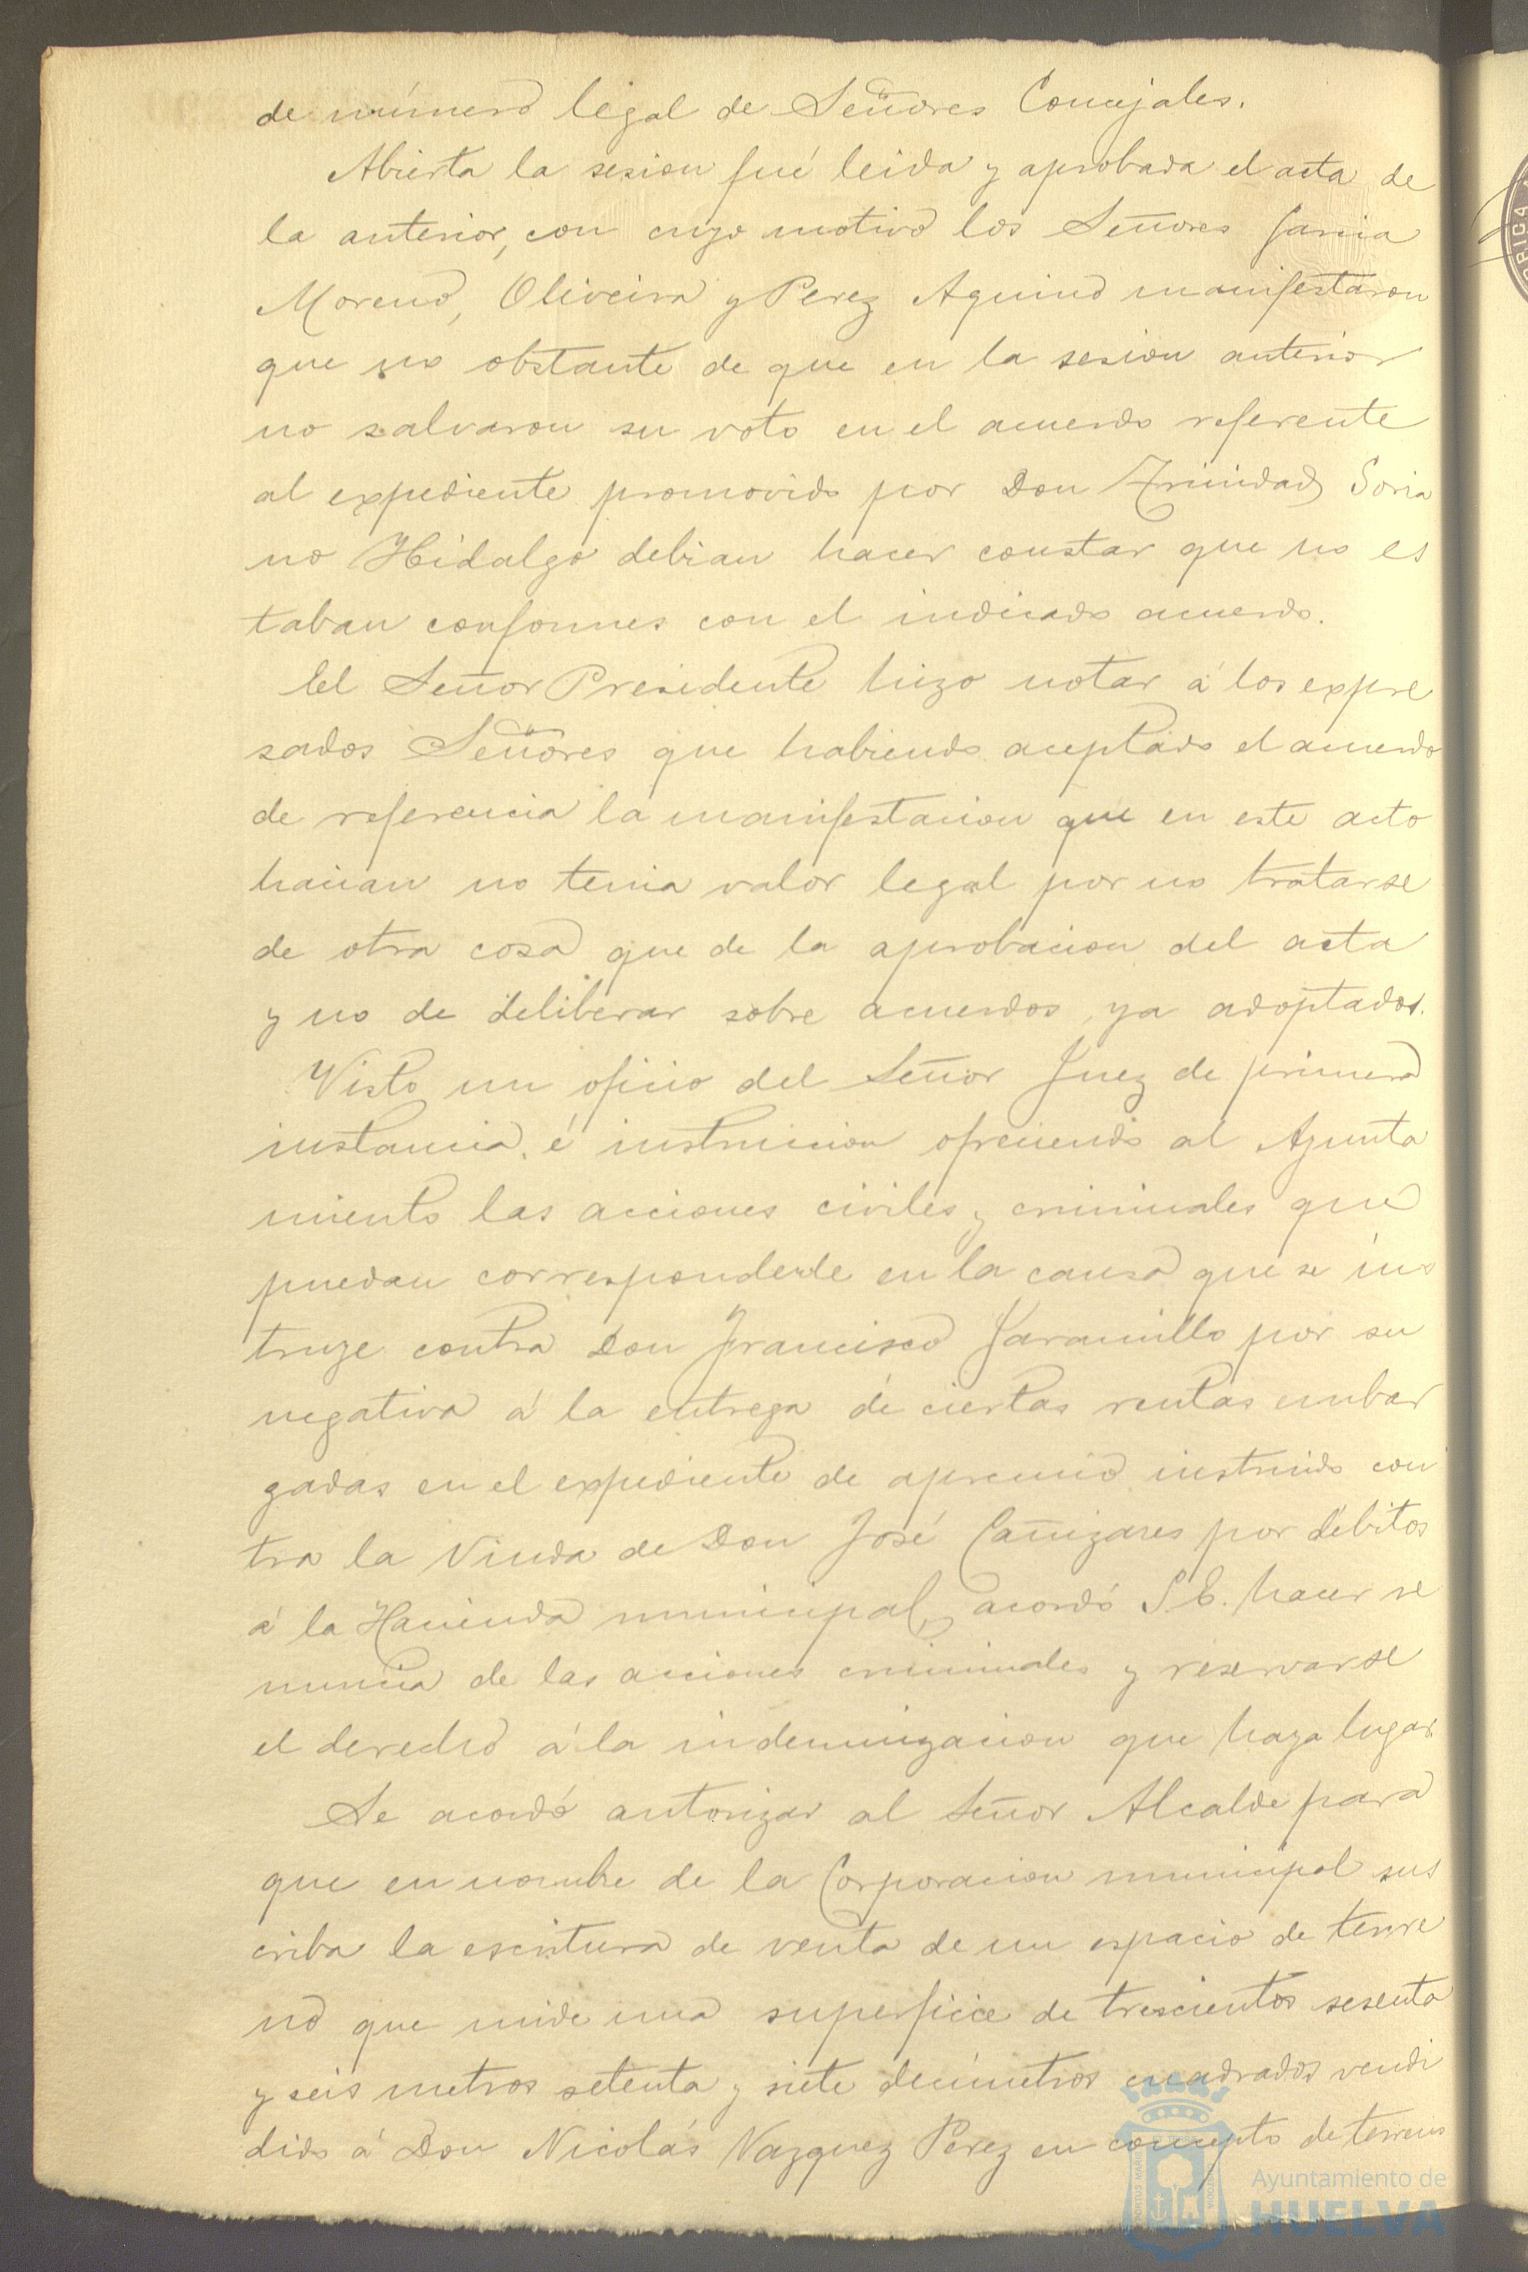 de número legal de Señores Concejales.
Abierta la sesion fué leida y aprobada el acta de
la anterior, con cuyo motivo los Señores Garcia
Moreno, Oliveira y Perez Aquino manifestaron
que no obstante de que en la sesion anterior
no salvaron su voto en el acuerdo referente
al expediente promovido por Don Trinidad Soria
no Hidalgo debian hacer constar que no es
taban conformes con el indicado acuerdo.
El Señor Presidente hizo notar á los expre
sados Señores que habiendo aceptado el acuerdo
de referencia la manifestacion que en este acto
hacian no tenia valor legal por no tratarse
de otra cosa que de la aprobacion del acta
y no de deliberar sobre acuerdos ya adoptados.
Visto un oficio del Señor Juez de primera
instancia é instruccion ofreciendo al Ayunta
miento las acciones civiles y criminales que
puedan corresponderle en la causa que se ins
truye contra Don Francisco Jaramillo por su
negativa á la entrega de ciertas rentas embar
gadas en el expediente de apremio instruido con
tra la Viuda de Don José Cañizares por débitos
á la Hacienda municipal, acordó S. E. hacer re
nuncia de las acciones criminales y reservarse
el derecho á la indemnizacion que haya lugar.
Se acordó autorizar al Señor Alcalde para
que en nombre de la Corporacion municipal sus
criba la escritura de venta de un espacio de terre
no que mide una superficie de trescientos sesenta
y seis metros setenta y siete decimetros cuadrados vendi
dido á Don Nicolás Vazquez Perez en concepto de terreno
Ayuntamiento de
HUELVA